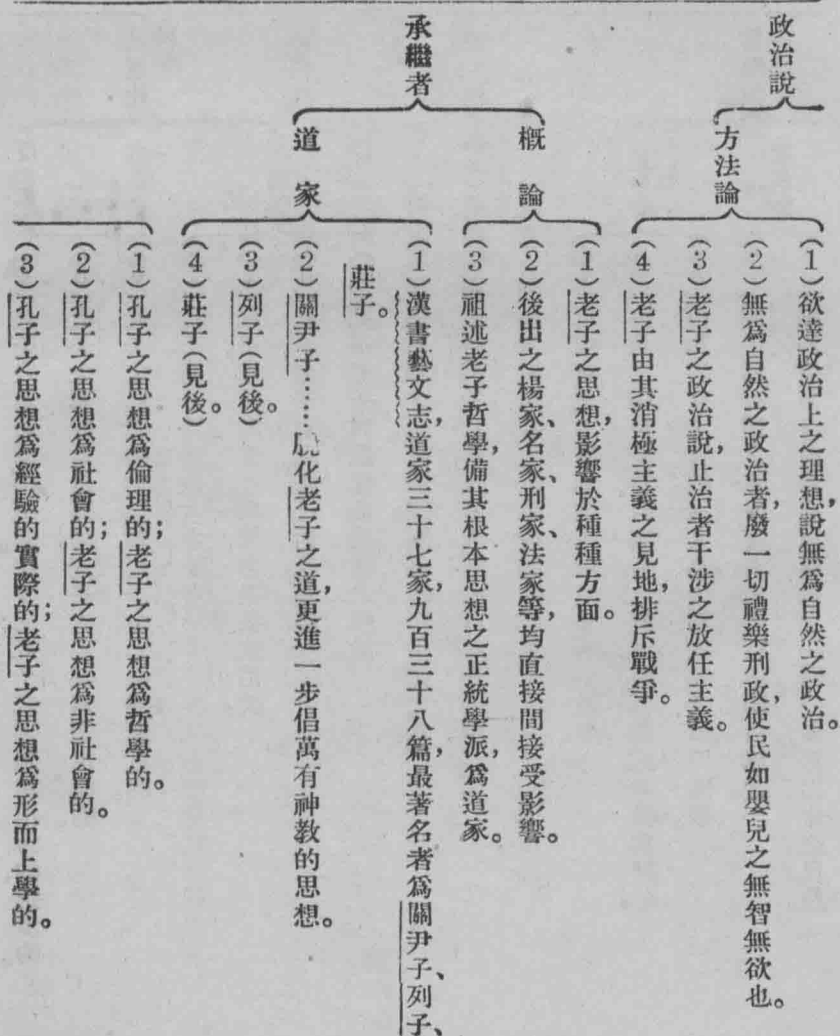 政治說
方法論
（1）欲達政治上之理想，說無爲自然之政治。
（2）無爲自然之政治者，廢一切禮樂刑政，使民如嬰兒之無智無欲也。
（3）老子之政治說，止治者干涉之放任主義。
（4）老子由其消極主義之見地，排斥戰爭。
承繼者
概論
（1）老子之思想，影響於種種方面。
（2）後出之楊家、名家、刑家、法家等，均直接間接受影響。
（3）祖述老子哲學，備其根本思想之正統學派，爲道家。
道家
（1）漢書藝文志，道家三十七家，九百三十八篇，最著名者爲關尹子、列子、
莊子。
（2）關尹子……脫化老子之道，更進一步倡萬有神教的思想。
（3）列子（見後。）
（4）莊子（見後。）
（1）孔子之思想爲倫理的；老子之思想爲哲學的。
（2）孔子之思想爲社會的；老子之思想爲非社會的。
（3）孔子之思想爲經驗的實際的；老子之思想爲形而上學的。